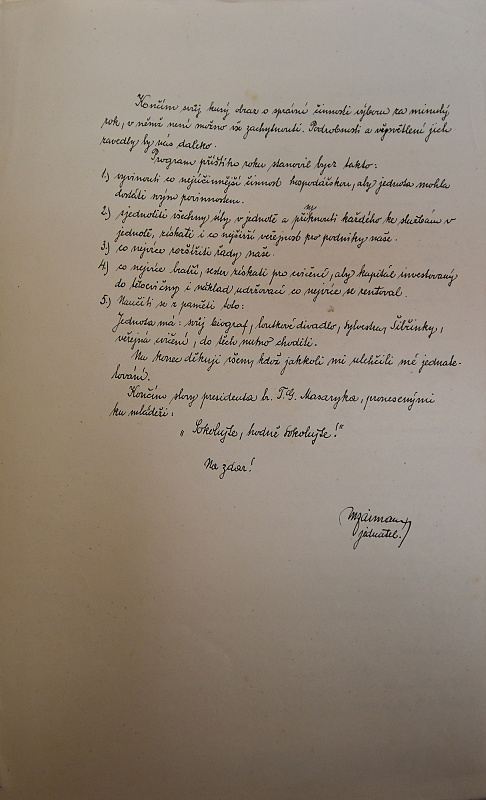 Končím svůj kusý obraz o správní činnosti výboru za minulý
rok, v němž není možno vše zachytnouti. Podrobnosti a vysvětlení jich
zavedly by nás daleko.
Program příštího roku stanovil bych takto:
1.) vyvinouti co nejúčinnější činnost hospodářskou, aby jednota mohla
dostáti svým povinnostem.
2.) sjednotiti všechny síly v jednotě a přimknouti každého ke službám v
jednotě, získati i co nejširší veřejnost pro podniky naše.
3.) co nejvíce rozšířiti řady naše.
4.) co nejvíce bratří, sester získati pro cvičení, aby kapitál investovaný
do tělocvičny i náklad udržovací co nejvíce se rentoval.
5.) Naučiti se z paměti toto:
Jednota má: svůj biograf, loutkové divadlo, sylvestra, Šibřinky,
veřejná cvičení, do těch nutno choditi.
Na konec děkuji všem, kdož jakkoli mi ulehčili mé jednate-
lování.
Končím slovy presidenta br. T. G. Masaryka, pronesenými
ku mládeži:
„Sokolujte, hodně sokolujte!"
Na zdar!
jednatel.